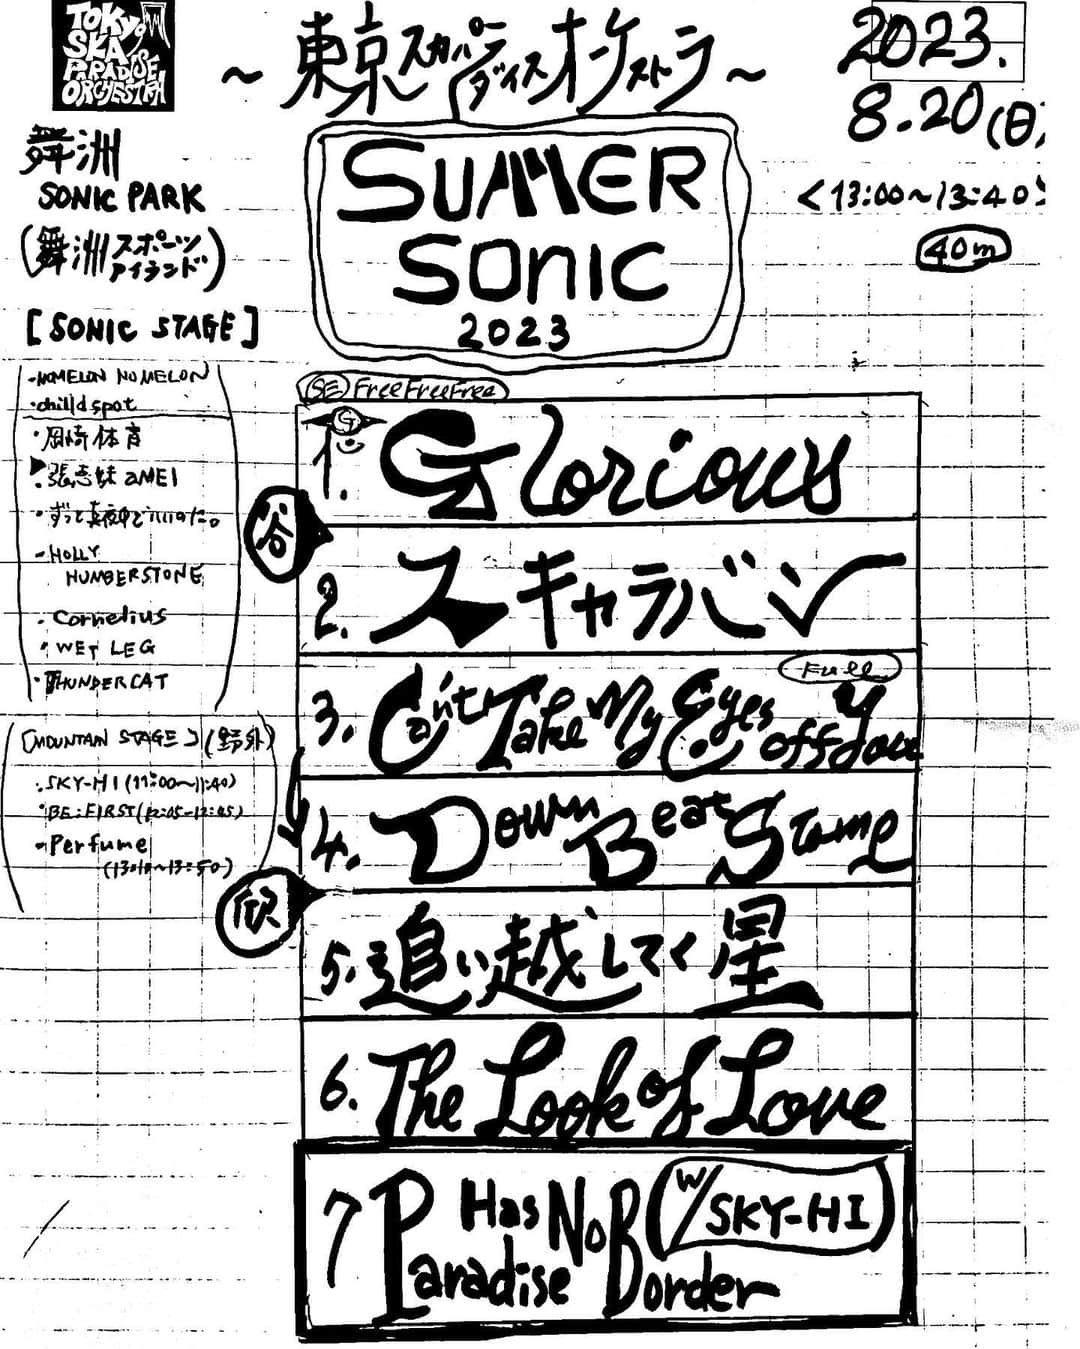 TOKYO
SKA
PARADISE
ORCHESTRA
～東京スカパラダイスオーケストラ～
2023.
8.20(日)
<13:00～13:40>
40m
舞洲
SONIC PARK
(舞洲スポーツ
アイランド)
[SONIC STAGE]
SUMMER
SONIC
2023
・NOMELON NOLEMON
・chilldspot
・岡崎体育
・張惠妹 aMEI
・ずっと真夜中でいいのに。
・HOLLY
HUMBERSTONE
・Cornelius
・WET LEG
・THUNDERCAT
[MOUNTAIN STAGE](野外)
・SKY-HI(11:00～11:40)
・BE:FIRST(12:05-12:45)
・Perfume
(13:10～13:50)
SE FreeFreeFree
1. Glorious
谷
2. スキャラバン
Full
3. Can't Take My Eyes off you
4. Down Beat Stomp
欣
5. 追い越してく星
6. The Look of Love
7 Paradise Has No Border (w/SKY-HI)